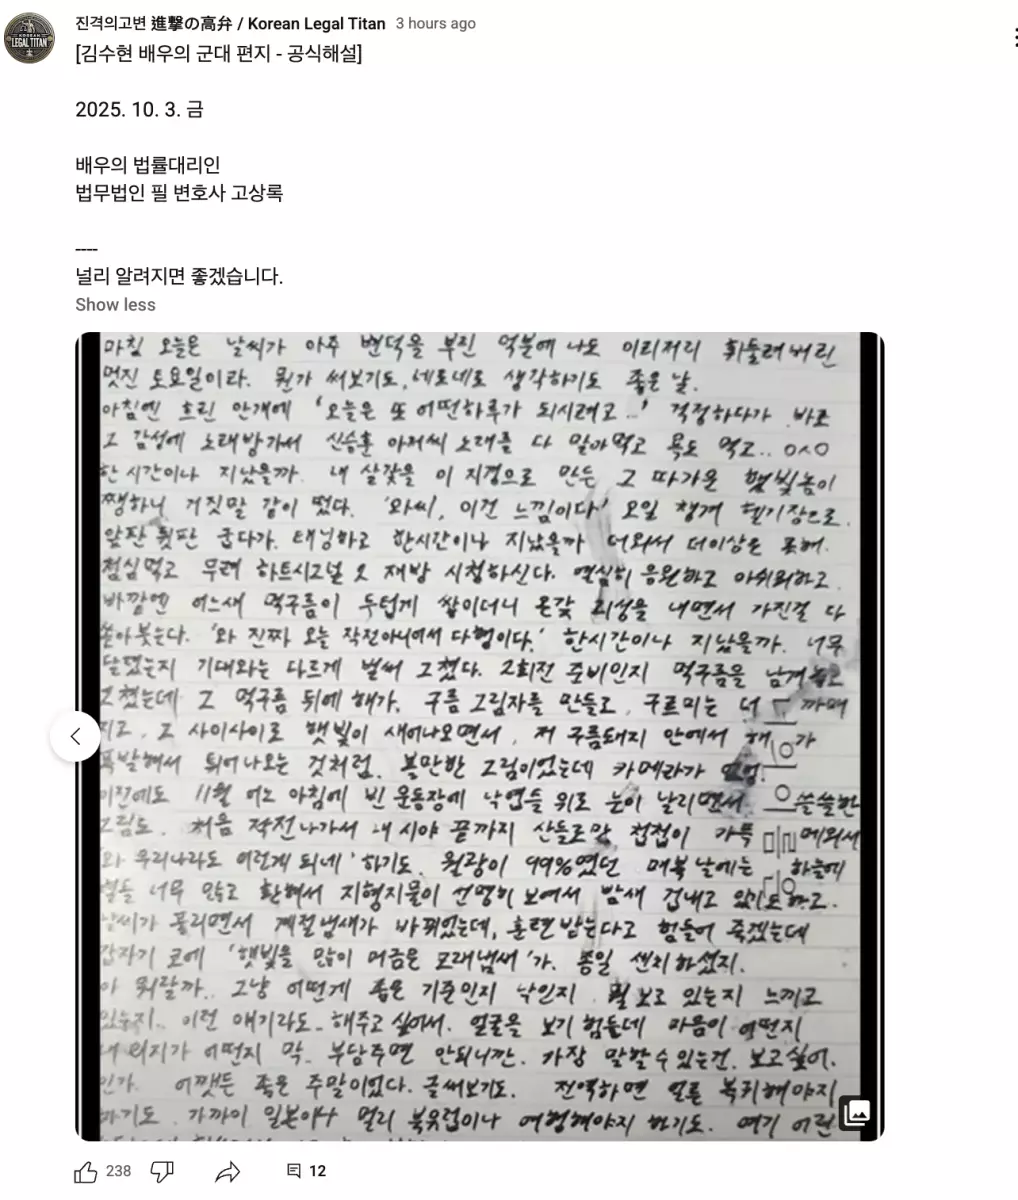 진격의고변 進撃の高弁 / Korean Legal Titan 3 hours ago
[김수현 배우의 군대 편지 - 공식해설]
2025. 10. 3. 금
배우의 법률대리인
법무법인 필 변호사 고상록
----
널리 알려지면 좋겠습니다.
Show less
마침 오늘은 날씨가 아주 변덕을 부린 덕분에 나도 이리저리 휘둘려버린
멋진 토요일이라. 뭔가 써보기도, 네로네로 생각하기도 좋은 날.
아침엔 흐린 안개에 '오늘은 또 어떤하루가 되시려고..' 걱정하다가 바로
그 감성에 노래방가서 신승훈 아저씨 노래를 다 말아먹고 욕도 먹고.. ㅇㅅㅇ
한 시간이나 지났을까. 내 살갗을 이 지경으로 만든 그 따가운 햇빛놈이
쨍하니 거짓말 같이 떴다. '와씨, 이건 느낌이다' 오일 챙겨 헬기장으로.
앞판 뒷판 굽다가. 태닝하고 한시간이나 지났을까 더워서 더이상은 못해.
점심먹고 무려 하트시그널 2 재방 시청하신다. 열심히 응원하고 아쉬워하고.
바깥엔 어느새 먹구름이 두텁게 쌓이더니 온갖 리성을 내면서 가진걸 다
쏟아붓는다. '와 진짜 오늘 작전아니여서 다행이다.' 한시간이나 지났을까. 너무
달랬는지 기대와는 다르게 벌써 그쳤다. 2회전 준비인지 먹구름을 남겨놓고
그쳤는데 그 먹구름 뒤에 해가, 구름 그림자를 만들고, 구르미는 더 까매
지고, 그 사이사이로 햇빛이 새어나오면서, 저 구름돼지 안에서 해가
폭발해서 튀어나오는 것처럼. 볼만한 그림이었는데 카메라가 없었
이전에도 11월 어느 아침에 빈 운동장에 낙엽들 위로 눈이 날리면서 쓸쓸한
그림도. 처음 작전나가서 내 시야 끝까지 산들로만 첩첩이 가득 메워서
'와 우리나라도 이렇게 되네' 하기도. 월광이 99%였던 매복 날에는 하늘에
별들 너무 많고 환해서 지형지물이 선명히 보여서 밤새 겁내고 있기도하고.
날씨가 풀리면서 계절냄새가 바뀌었는데, 훈련 받는다고 힘들어 죽겠는데
갑자기 코에 '햇빛을 많이 머금은 모래냄새'가. 종일 센치하셨지.
아 뭐랄까.. 그냥 어떻게 좋은 기준인지 낙인지 뭘 보고 있는지 느끼고
있는지.. 이런 얘기라도.. 해주고 싶어서. 얼굴을 보기 힘들데 마음이 어떤지
내 의지가 어떤지 막.. 부담주면 안되니깐. 가장 말할수있는건. 보고싶어.
인가. 어쨌든 좋은 주말이었다. 글써보기도. 전역하면 얼른 복귀해야지
하기도. 가까이 일본이나 멀리 북유럽이나 여행해야지 하기도. 여기 어린
238
12